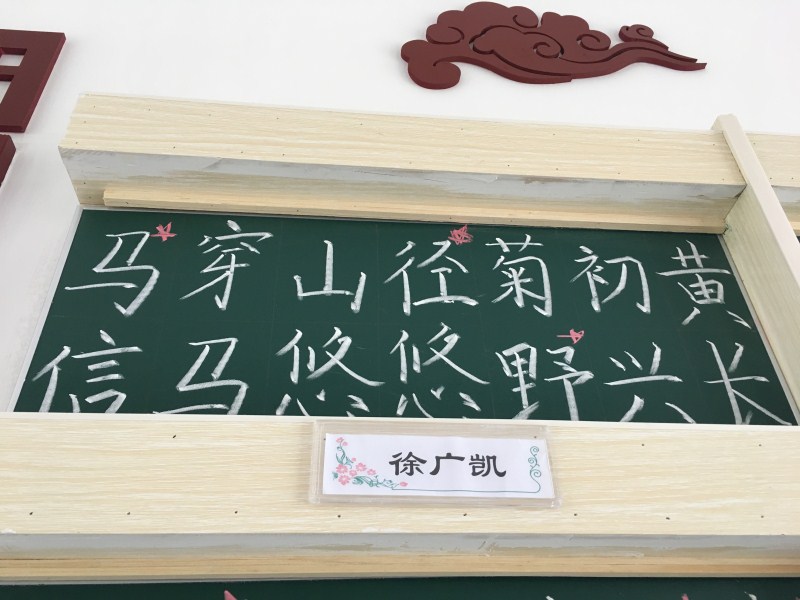 马穿山径菊初黄
信马悠悠野兴长
徐广凯